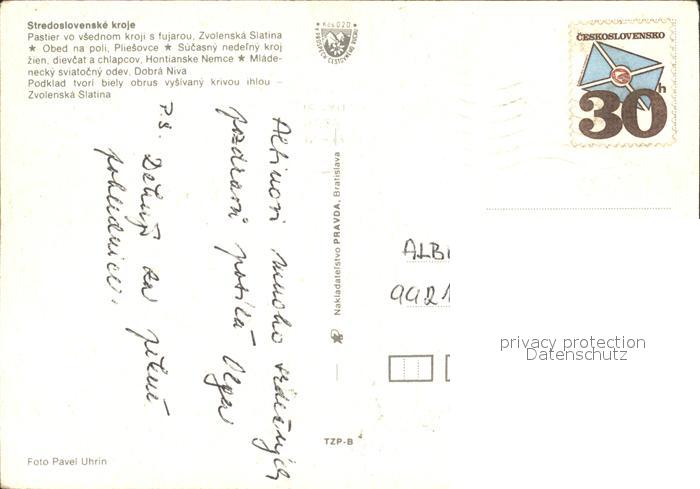 Stredoslovenské kroje
Pastier vo všednom kroji s fujarou, Zvolenská Slatina
★ Obed na poli, Pliešovce ★ Súčasný nedeľný kroj
žien, dievčat a chlapcov, Hontianske Nemce ★ Mláde-
necký sviatočný odev, Dobrá Niva
Podklad tvorí biely obrus vyšívaný krivou ihlou –
Zvolenská Slatina
Kčs 0,20
mnoho srdečných
pozdravů posílá Olga
P.S. Děkuji za pěkné
pohlednice.
Nakladateľstvo PRAVDA, Bratislava
TZP-B 4
Foto Pavel Uhrin
ČESKOSLOVENSKO
30h
ALBI
9921
privacy protection
Datenschutz